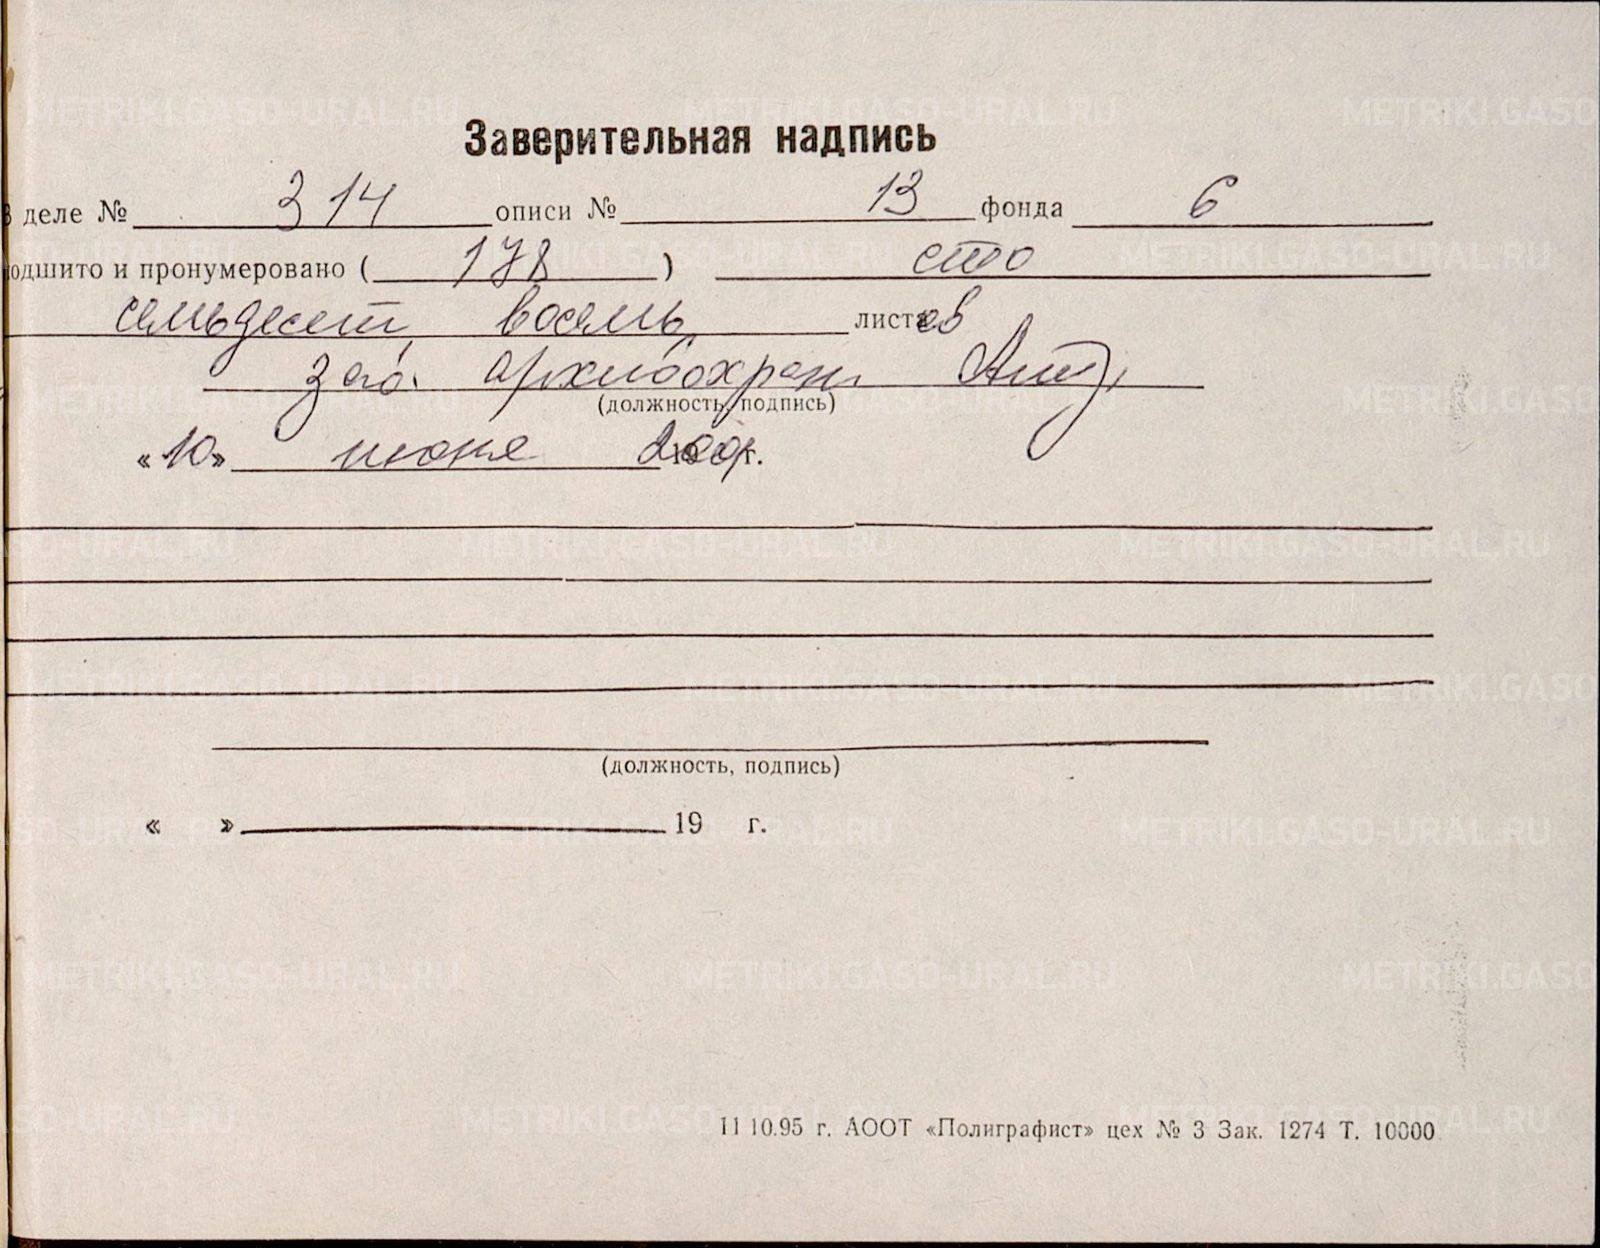 Заверительная надпись
В деле № 314 описи № 13 фонда 6
подшито и пронумеровано ( 178 ) сто
семьдесят восемь листов
зав. архивохран.
(должность, подпись)
«10» июня г.
(должность, подпись)
« » 19 г.
11 10.95 г. АООТ «Полиграфист» цех № 3 Зак. 1274 Т. 10000
METRIKI.GASO-URAL.RU